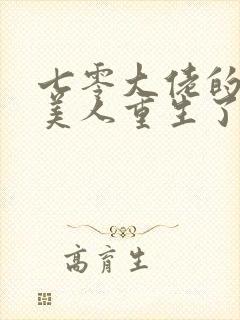 七零大佬的
美人重生了
高育生